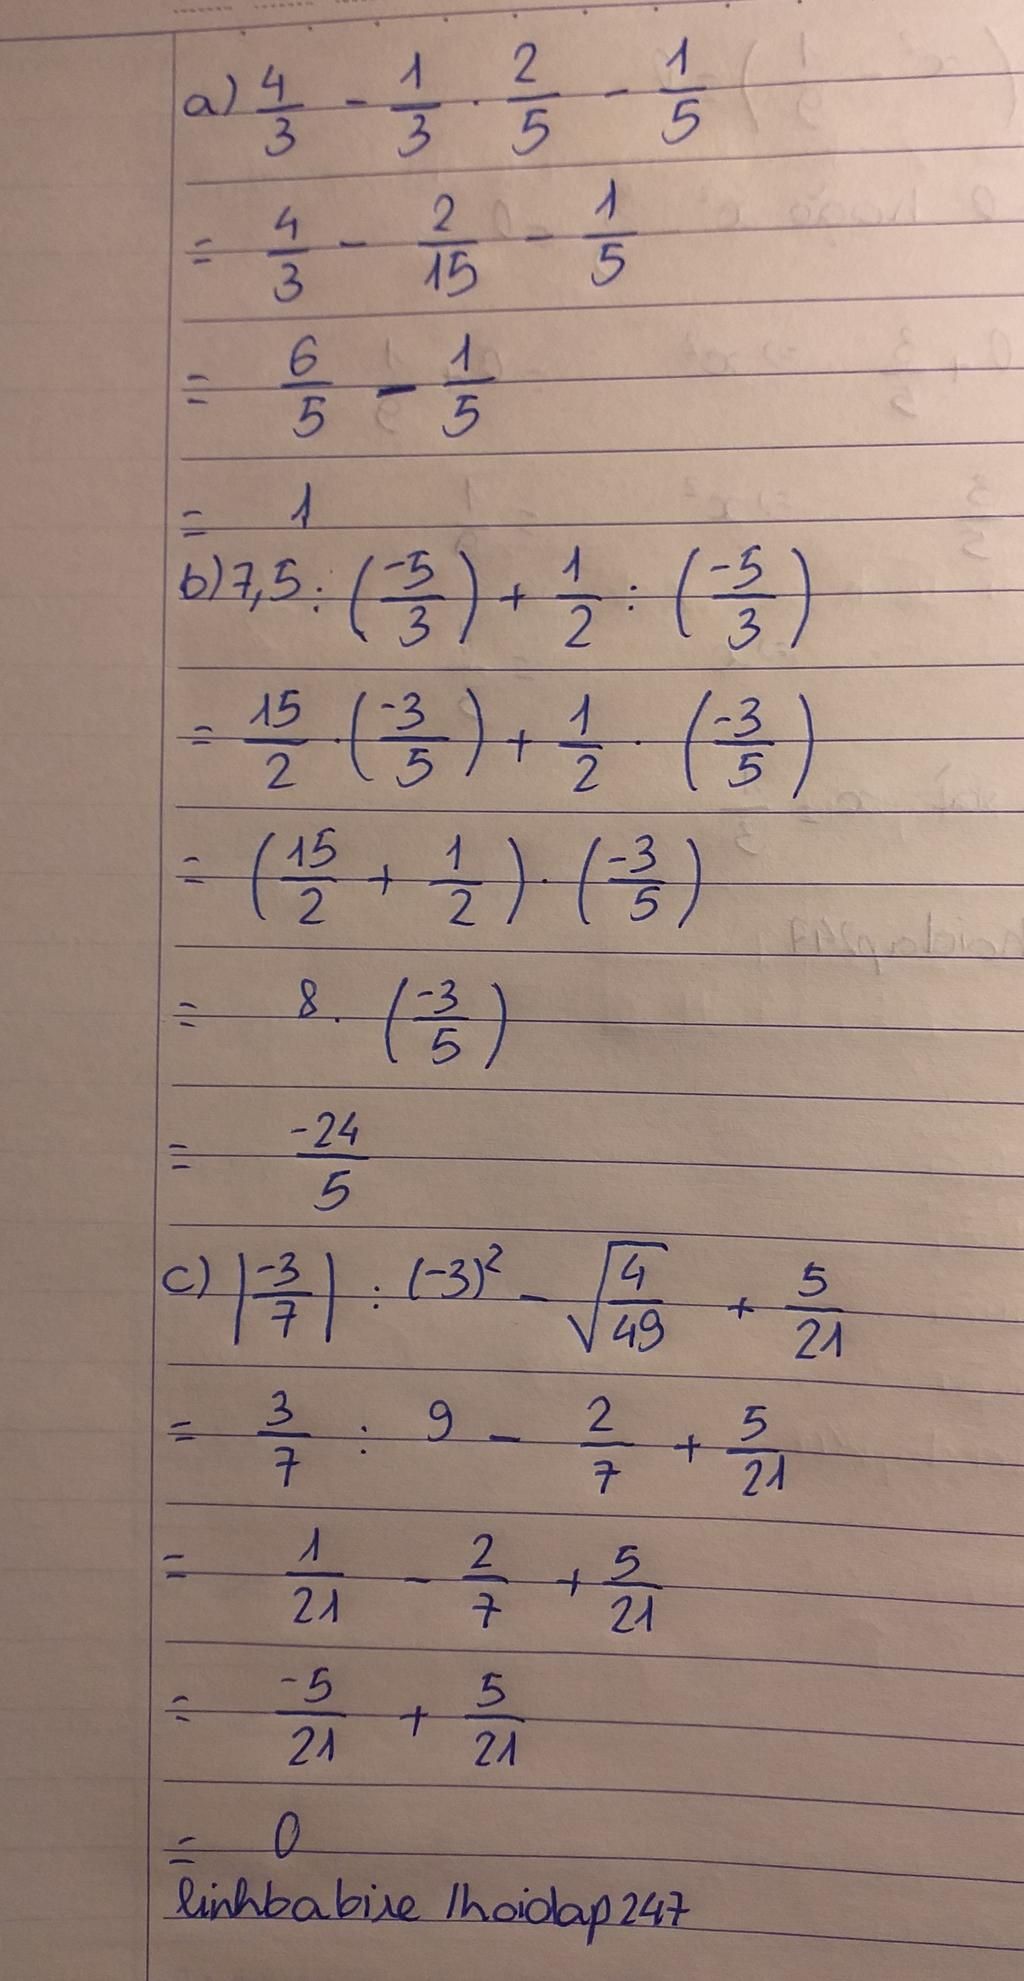 a) 4/3 - 1/3 . 2/5 - 1/5
= 4/3 - 2/15 - 1/5
= 6/5 - 1/5
= 1
b) 7,5 : (-5/3) + 1/2 : (-5/3)
= 15/2 . (-3/5) + 1/2 . (-3/5)
= (15/2 + 1/2) . (-3/5)
= 8 . (-3/5)
= -24/5
c) |-3/7| : (-3)² - √(4/49) + 5/21
= 3/7 : 9 - 2/7 + 5/21
= 1/21 - 2/7 + 5/21
= -5/21 + 5/21
= 0
/hoidap247